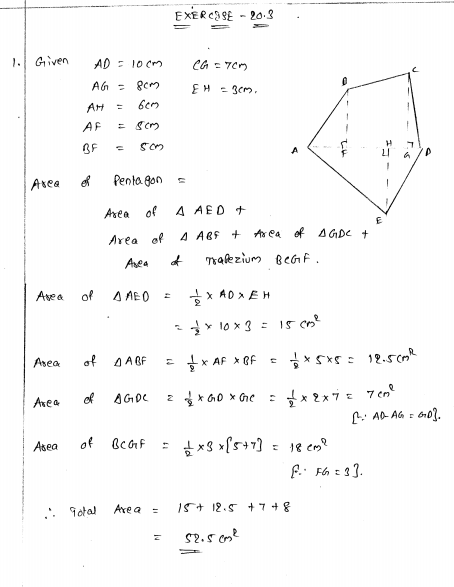 EXERCISE - 20.3
1. Given AD = 10 cm CG = 7 cm
AG = 8cm EH = 3cm.
AH = 6cm
AF = 5cm
BF = 5cm
A B C D E F H G
Area of Pentagon =
Area of Δ AED +
Area of Δ ABF + Area of Δ GDC +
Area of Trapezium BCGF.
Area of Δ AED = 1/2 × AD × EH
= 1/2 × 10 × 3 = 15 cm²
Area of Δ ABF = 1/2 × AF × BF = 1/2 × 5 × 5 = 12.5 cm²
Area of ΔGDC = 1/2 × GD × GC = 1/2 × 2 × 7 = 7 cm²
[∵ AD-AG = GD].
Area of BCGF = 1/2 × 3 × [5+7] = 18 cm²
[∵ FG = 3].
∴ Total Area = 15 + 12.5 + 7 + 8
= 52.5 cm²